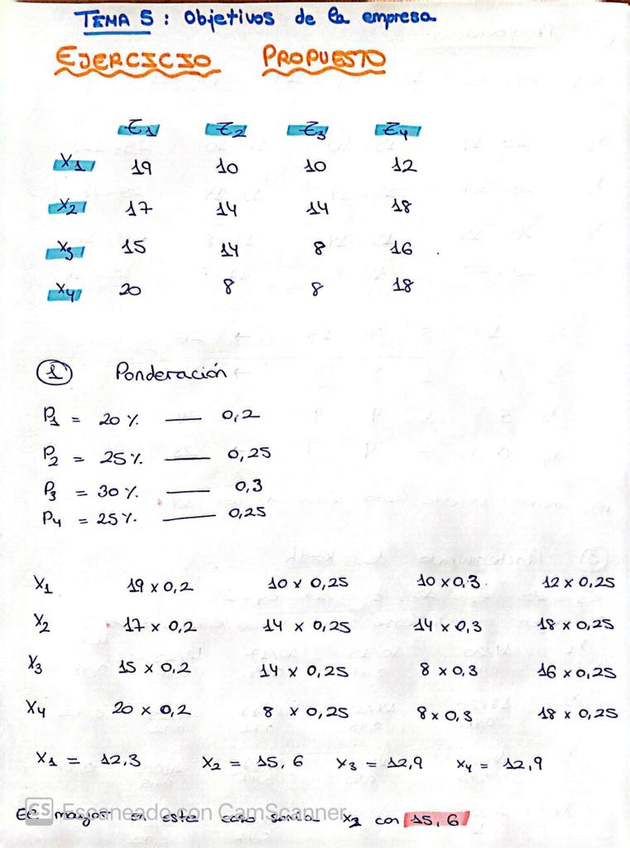 TEMA 5 : Objetivos de la empresa
EJERCICIO PROPUESTO
E1 E2 E3 E4
X1 19 10 10 12
X2 17 14 14 18
X3 15 14 8 16
X4 20 8 8 18
1 Ponderación
P1 = 20 % — 0,2
P2 = 25 % — 0,25
P3 = 30 % — 0,3
P4 = 25 % — 0,25
X1 19 x 0,2 10 x 0,25 10 x 0,3 12 x 0,25
X2 17 x 0,2 14 x 0,25 14 x 0,3 18 x 0,25
X3 15 x 0,2 14 x 0,25 8 x 0,3 16 x 0,25
X4 20 x 0,2 8 x 0,25 8 x 0,3 18 x 0,25
X1 = 12,3 X2 = 15,6 X3 = 12,9 X4 = 12,9
El mayor en este caso sería x2 con 15,6
CS Escaneado con CamScanner